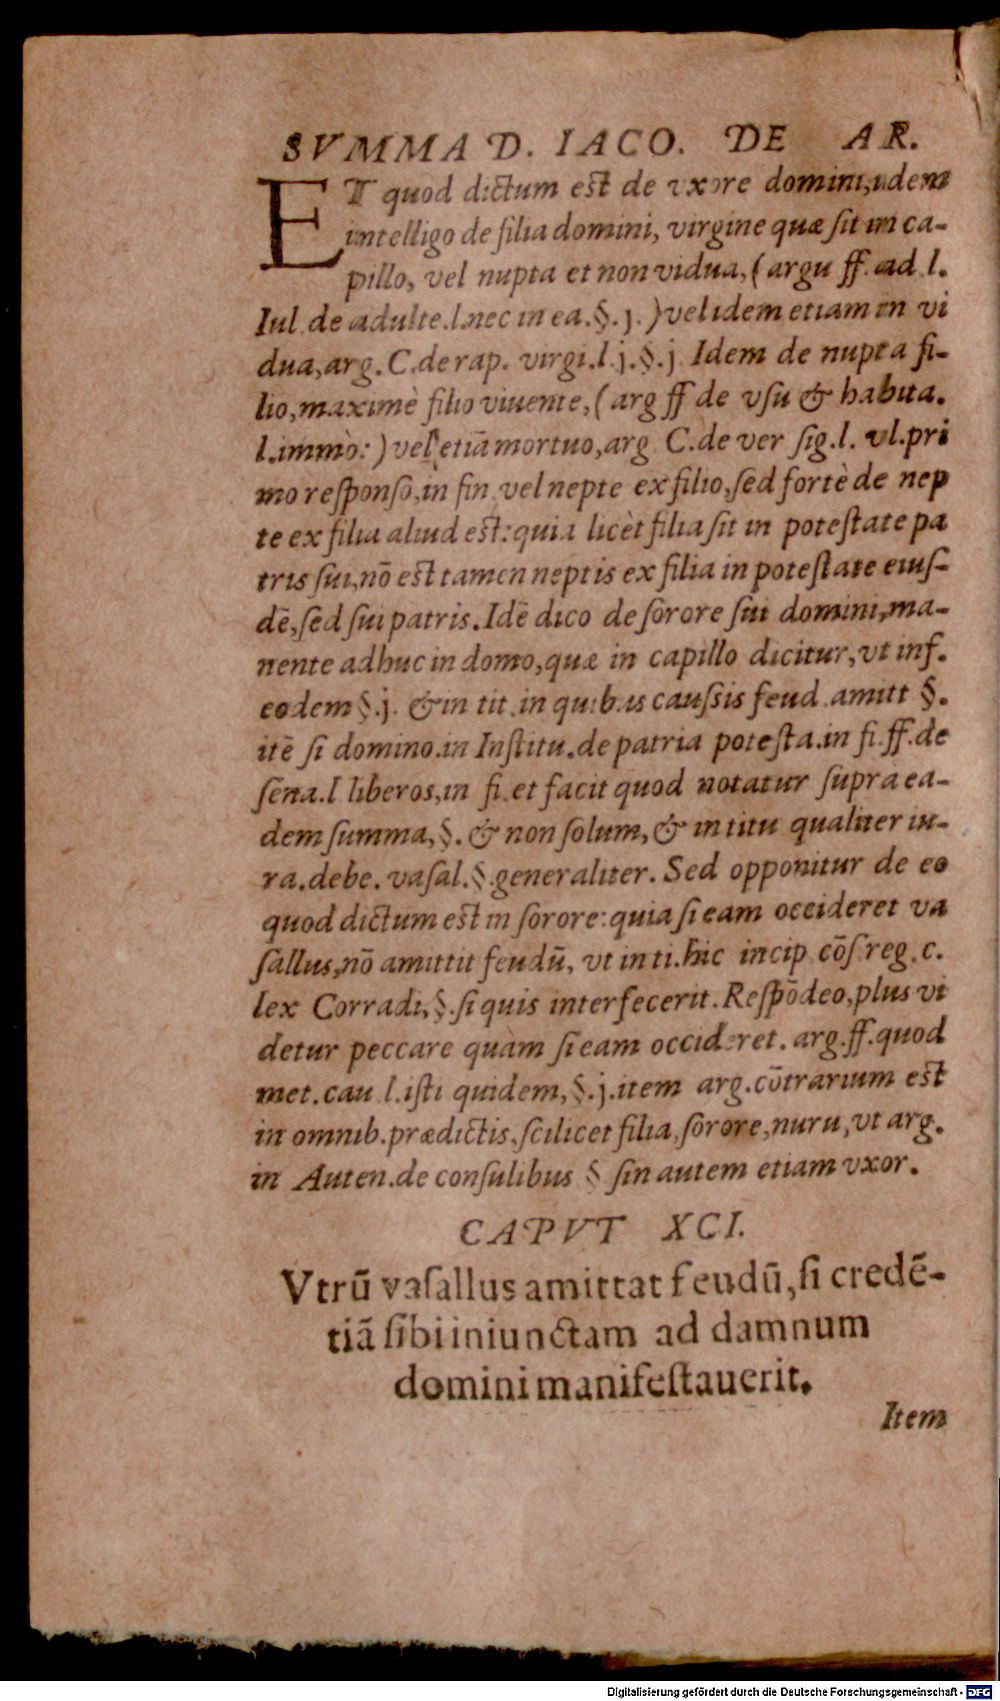 SVMMA D. IACO. DE AR.
ET quod dictum est de vxore domini, idem
intelligo de filia domini, virgine quæ sit in ca-
pillo, vel nupta et non vidua, ( argu ff. ad l.
Iul. de adulte. l. nec in ea. §. j. ) vel idem etiam in vi
dua, arg. C. de rap. virgi. l. j. §. j. Idem de nupta fi-
lio, maximè filio viuente, ( arg ff de vsu & habita.
l. immò: ) vel etiā mortuo, arg C. de ver sig. l. vl. pri
mo responso, in fin. vel nepte ex filio, sed fortè de nep
te ex filia aliud est: quia licèt filia sit in potestate pa
tris sui, nō est tamen neptis ex filia in potestate eius-
dē, sed sui patris. Idē dico de sorore sui domini, ma-
nente adhuc in domo, quæ in capillo dicitur, vt inf.
eodem §. j. & in tit. in quibus caussis feud. amitt §.
itē si domino. in Institu. de patria potesta. in fi. ff. de
sena. l liberos, in fi. et facit quod notatur supra ea-
dem summa, §. & non solum, & in titu qualiter iu-
ra. debe. vasal. §. generaliter. Sed opponitur de eo
quod dictum est in sorore: quia si eam occideret va
sallus, nō amittit feudū, vt in ti. hic incip cōs reg. c.
lex Corradi, §. si quis interfecerit. Respōdeo, plus vi
detur peccare quàm si eam occideret. arg. ff. quod
met. cau l. isti quidem, §. j. item arg. cōtrarium est
in omnib. prædictis, scilicet filia, sorore, nuru, vt arg.
in Auten. de consulibus § sin autem etiam vxor.
CAPVT XCI.
Vtrū vasallus amittat feudū, si credē-
tiā sibi iniunctam ad damnum
domini manifestauerit.
Item
Digitalisierung gefördert durch die Deutsche Forschungsgemeinschaft - DFG